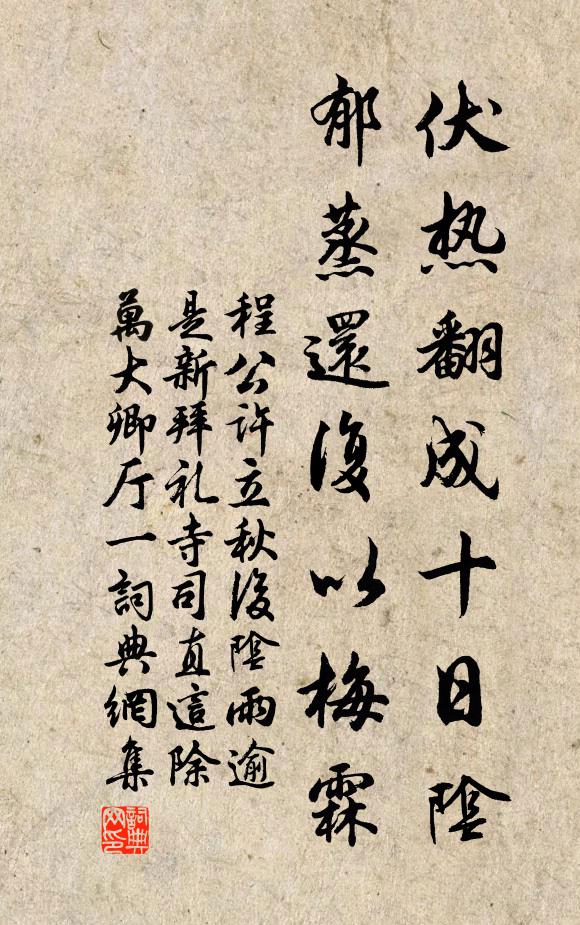 伏热翻成十日陰
郁蒸還復以梅霖
程公許立秋後陰雨逾
是新拜礼寺司直這除
萬大卿厅一詞典網集
詞典网印